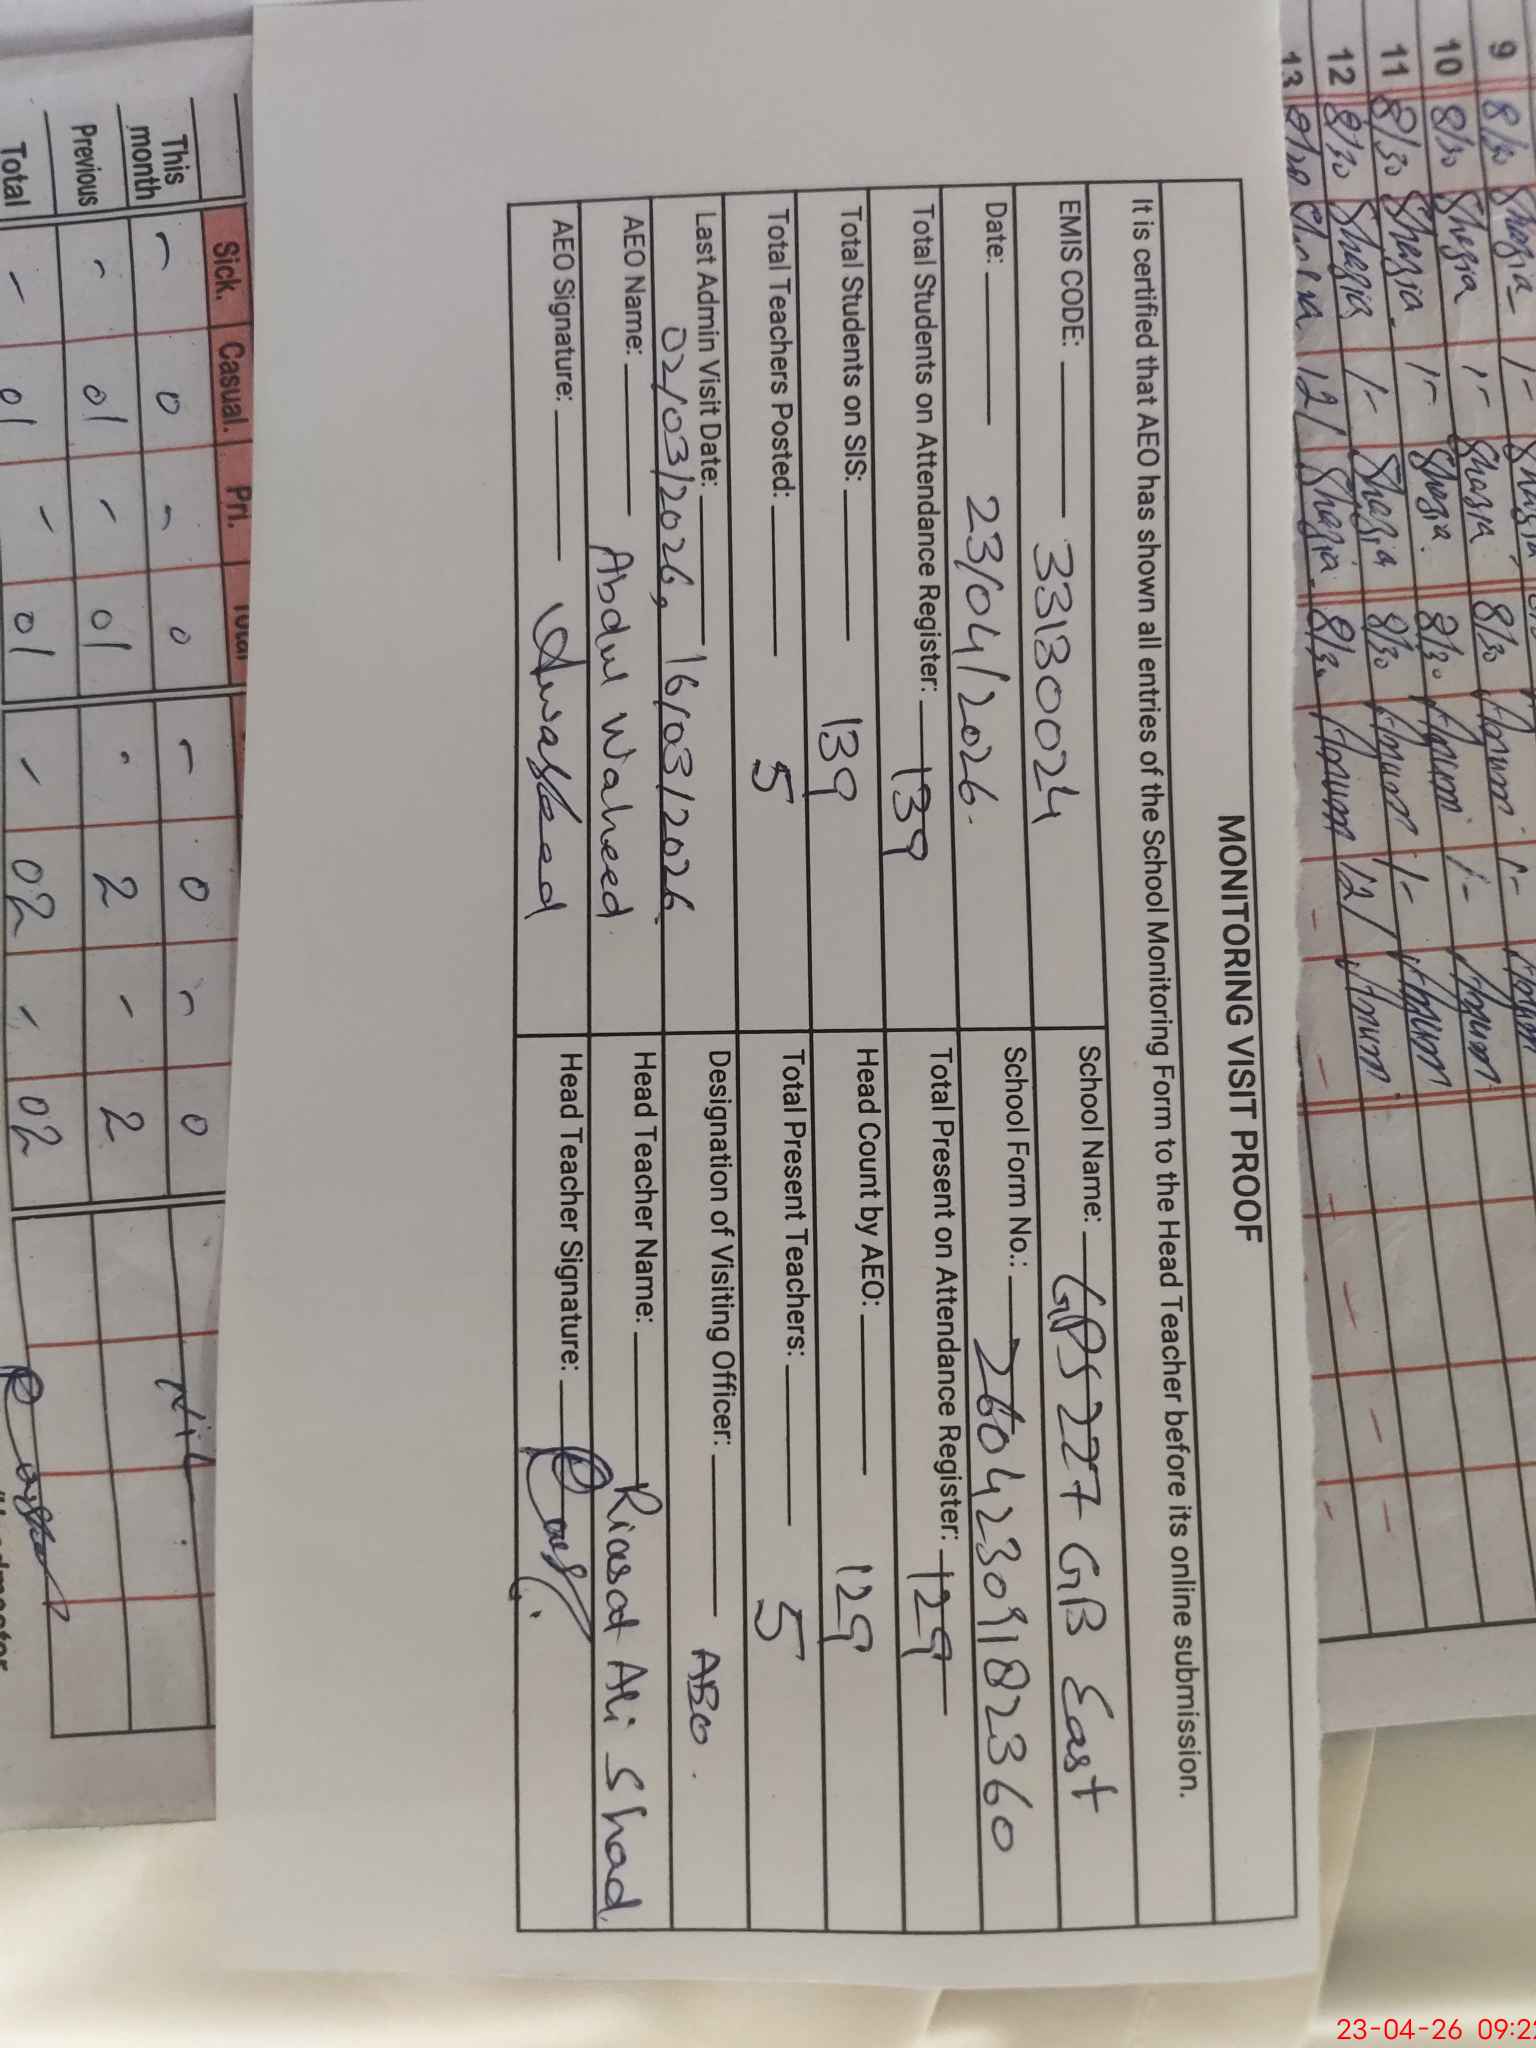 MONITORING VISIT PROOF
It is certified that AEO has shown all entries of the School Monitoring Form to the Head Teacher before its online submission.
EMIS CODE: 33130024
School Name: GPS 227 GB East
Date: 23/04/2026.
School Form No.: 26042309182360
Total Students on Attendance Register: 139
Total Present on Attendance Register: 129
Total Students on SIS: 139
Head Count by AEO: 129
Total Teachers Posted: 5
Total Present Teachers: 5
Last Admin Visit Date: 02/03/2026, 16/03/2026
Designation of Visiting Officer: AEO.
AEO Name: Abdul Waheed.
Head Teacher Name: Riasat Ali Shad.
AEO Signature: Awaheed
Head Teacher Signature:
9 8/30 Shazia 1-
10 8/30 Shazia 1- Shazia 8/30 Anum 1- Anum
11 8/30 Shazia 1- Shazia 8/30 Anum 1- Anum
12 8/30 Shazia 1- Shazia 8/30 Anum 1- Anum
13 8/30 Shazia 12/ Shazia 8/30 Anum 12/ Anum
Sick. Casual. Pri. Total
This month - 0 - 0 - 0 - 0 Nil
Previous - 01 - 01 - 2 - 2
Total - 01 - 01 - 02 - 02
23-04-26 09:22